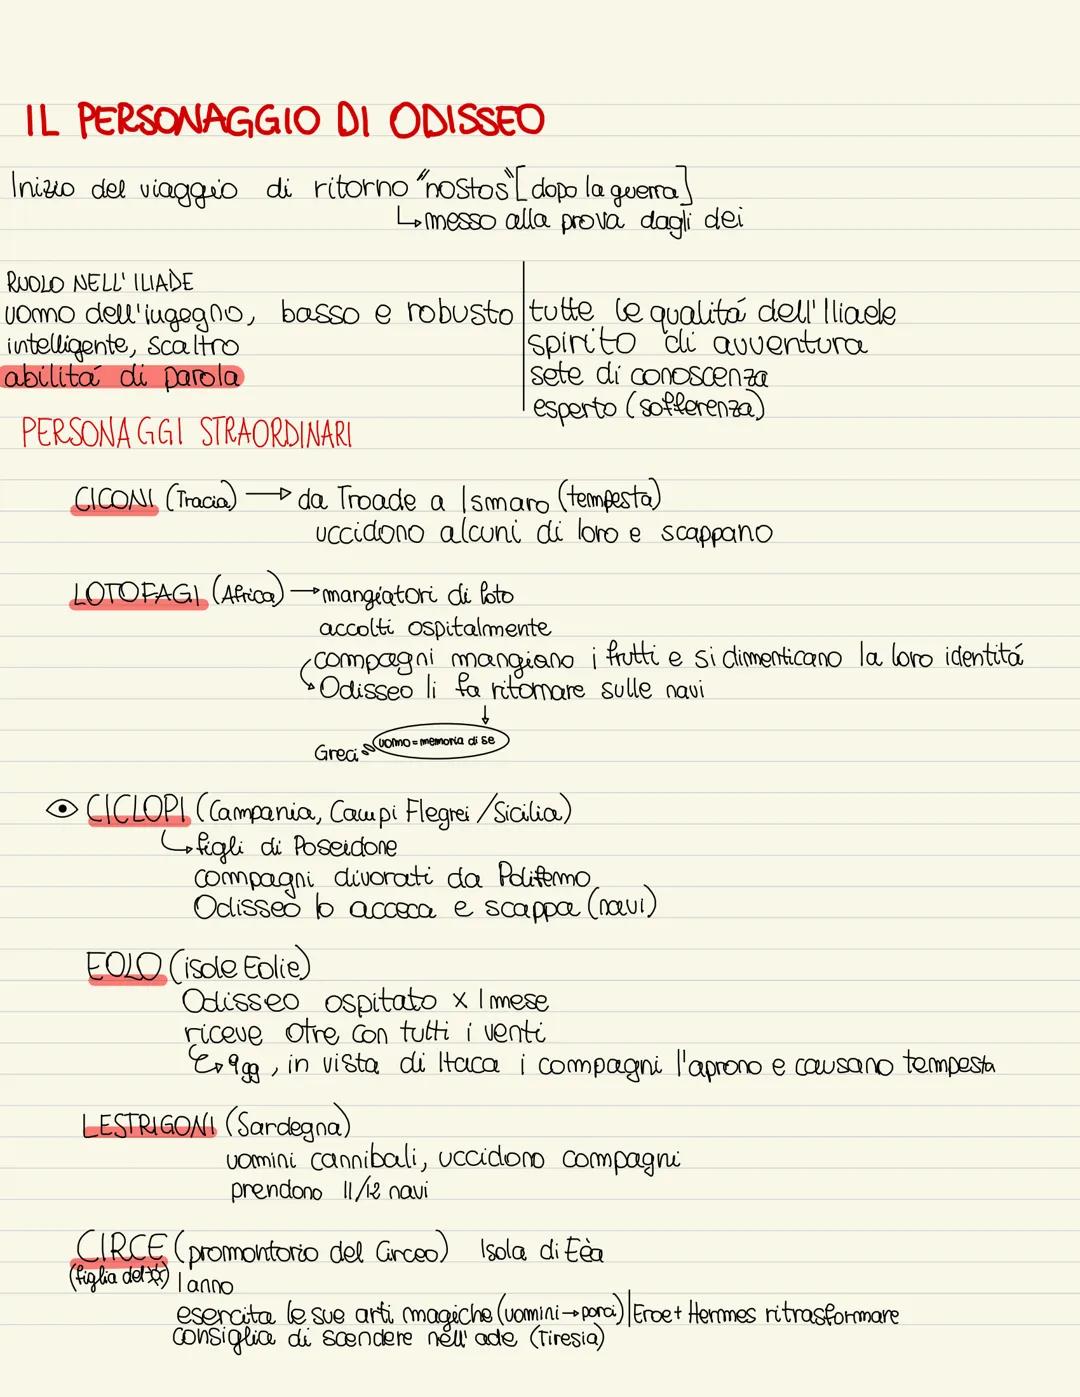 IL PERSONAGGIO DI ODISSEO
Inizio del viaggio di ritorno "nostos" [dopo la guerra]
↳messo alla prova dagli dei
RUOLO NELL'ILIADE
uomo dell'ingegno, basso e robusto
intelligente, scaltro
abilitá di parola
tutte le qualitá dell'Iliade
spirito di avventura
sete di conoscenza
esperto (sofferenza)
PERSONAGGI STRAORDINARI
CICONI (Tracia) → da Troade a Ismaro (tempesta)
uccidono alcuni di loro e scappano
LOTOFAGI (Africa) → mangiatori di loto
accolti ospitalmente
compagni mangiano i frutti e si dimenticano la loro identitá
Odisseo li fa ritornare sulle navi
Greci uomo = memoria di se
CICLOPI (Campania, Campi Flegrei / Sicilia)
↳figli di Poseidone
compagni divorati da Polifemo
Odisseo lo acceca e scappa (navi)
EOLO (isole Eolie)
Odisseo ospitato x 1 mese
riceve otre con tutti i venti
↳ 9gg, in vista di Itaca i compagni l'aprono e causano tempesta
LESTRIGONI (Sardegna)
uomini cannibali, uccidono compagni
prendono 11/12 navi
CIRCE (promontorio del Circeo) Isola di Eèa
(figlia del ☼) 1 anno
esercita le sue arti magiche (uomini→porci) | Eroe + Hermes ritrasformare
consiglia di scendere nell'ade (Tiresia)